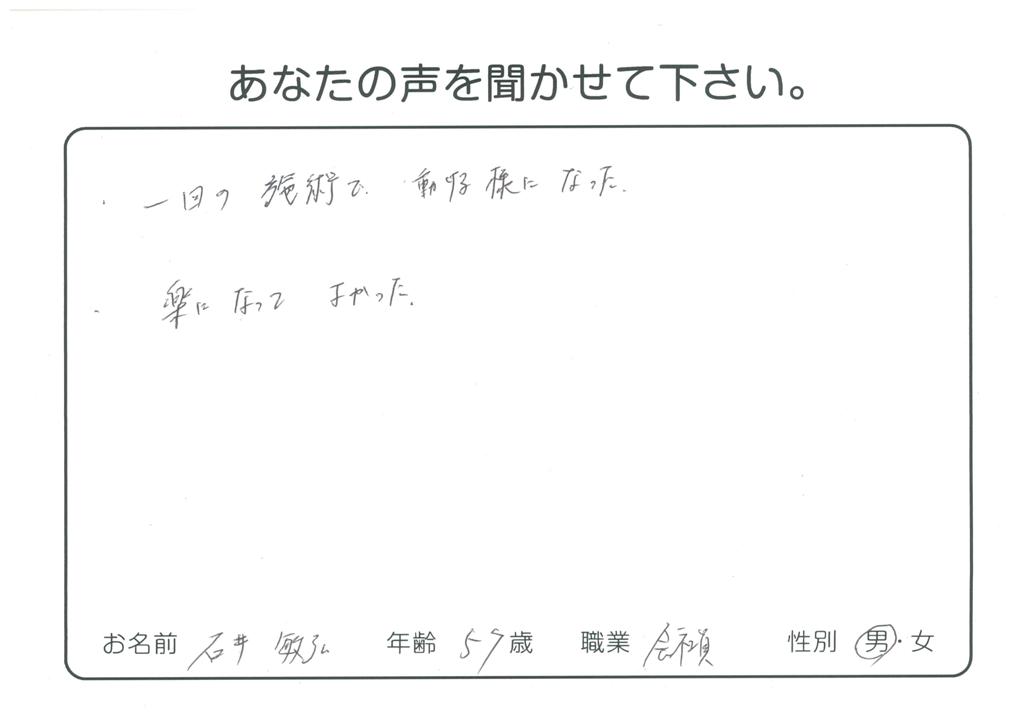 あなたの声を聞かせて下さい。
・一回の施術で、動ける様になった。
・楽になって よかった。
お名前 石井 敏弘 年齢 57歳 職業 会社員 性別 男・女